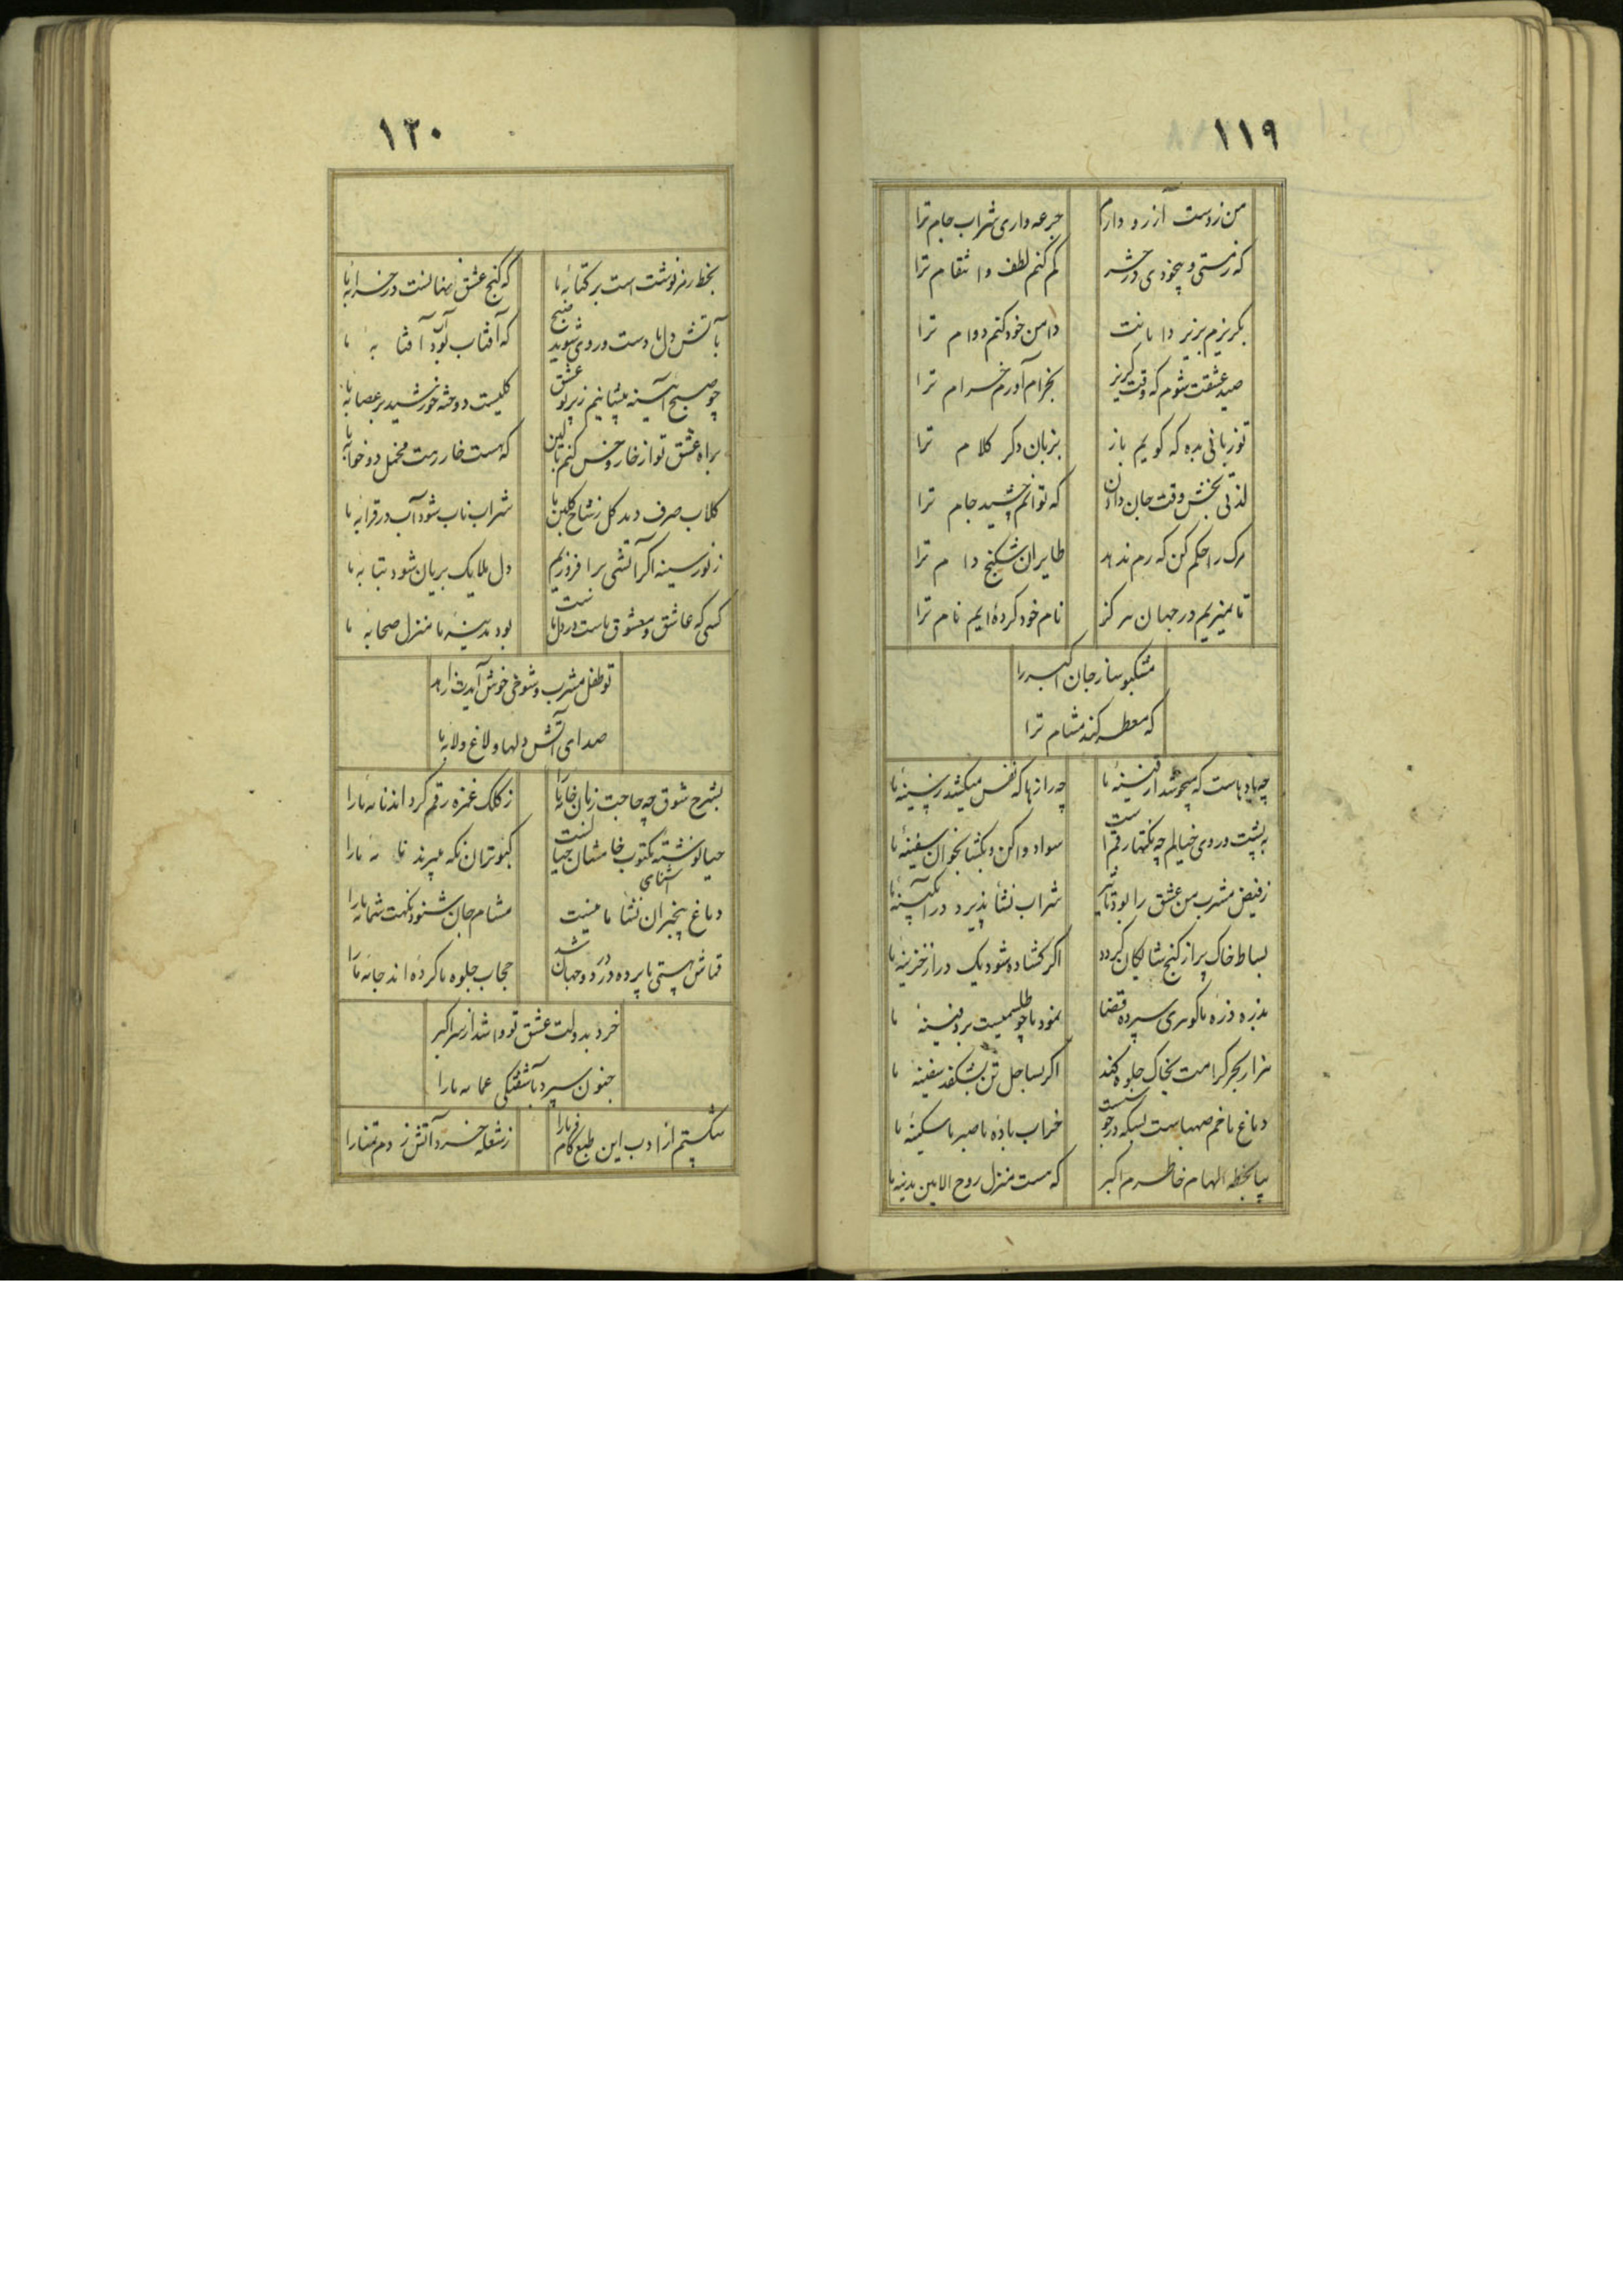 ۱۱۹
من ز دست آرزو دارم
جرعه واری شراب جام ترا
که ز مستی و بیخودی در حشر
کم کنم لطف و انتقام ترا
بگریزم بزیر دامانت
دامن خود کنم دوام ترا
صید عشقت شوم که وقت گریز
بخرام آورم خرام ترا
تو زبانی بده که گویم باز
بزبان دگر کلام ترا
لذتی بخش وقت جان دادن
که توانم چشید جام ترا
مرک را حکم کن که رم ندهد
طایران شکنج دام ترا
تا نمیریم در جهان هرگز
نام خود کرده‌ایم نام ترا
مشکبو ساز جان اکبر را
که معطر کند مشام ترا
چه بادهاست که میجوشد از قنینهٔ ما
چه رازها که نفس میکشد ز سینهٔ ما
به پشت و روی خیالم چه نکتها رقم است
سواد واکن و بگشا بخوان سفینهٔ ما
ز فیض مشرب من عشق را بود تاثیر
شراب نشأ پذیرد در آبگینهٔ ما
بساط خاک پر از گنج شایگان گردد
اگر گشاده شود یک در از خزینهٔ ما
بذره ذره ما گوهری سپرده قضا
نمود ما چو طلسمیست بر دفینهٔ ما
هزار بحر کرامت بخاک جلوه کند
اگر بساحل تن بشکفد سفینهٔ ما
دماغ ما خم صهباست بسکه در جوشست
خراب باده ما صبر ما سکینهٔ ما
بیا بخطه الهام خاطرم اکبر
که هست منزل روح الامین مدینهٔ ما
۱۲۰
بخط رمز نوشت است بر کتابهٔ ما
که گنج عشق نهانست در خرابهٔ ما
بآتش دل ما دست و روی شوید صبح
که آفتاب بود آب آفتابهٔ ما
چو صبح آینه پیشانیم ز پرتو عشق
گلیست دوخته خورشید بر عصابهٔ ما
براه عشق تو از خار و خس کنم بالین
که هست خار رهت مخمل دو خوابهٔ ما
گلاب صرف دهد گل ز شاخ گلبن ما
شراب ناب شود آب در قرابهٔ ما
ز نور سینه اگر آتشی برافروزیم
دل ملایک بریان شود بتابهٔ ما
کسی که عاشق و معشوق ماست در دل ماست
بود مدینهٔ ما منزل صحابهٔ ما
تو طفل مشرب و شوخی خوش آیدت زاهد
صدای آتش دلها و لاغ و لابهٔ ما
بشرح شوق چه حاجت زبان خامهٔ ما را
ز کلک غمزه رقم کرده‌اند نامهٔ ما را
حیا نوشته مکتوب خامشان حیاتست
کبوتران نگه میبرند نامهٔ ما را
دماغ بیخبران نشأ آشنای ما نیست
مشام جان شنود نکهت شمامهٔ ما را
قماش هستی ما پرده در دو جهان شد
حجاب جلوه ما کرده‌اند جامهٔ ما را
خرد بدولت عشق تو وا شد از سر اکبر
جنون سپرد بآشفتگی عمامهٔ ما را
شکستم از ادب این طبع کام فرما را
ز شعله خرد آتش زدم تمنا را